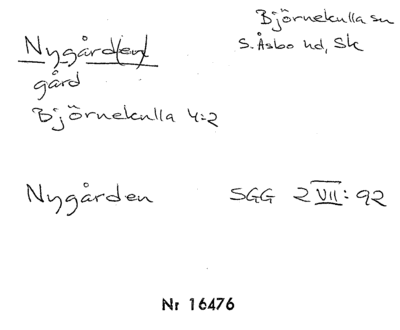 Nygård(en)
Björnekulla sn
S. Åsbo hd, Sk
gård
Björnekulla 4:2
Nygården SGG 2 VII: 92
Nr 16476